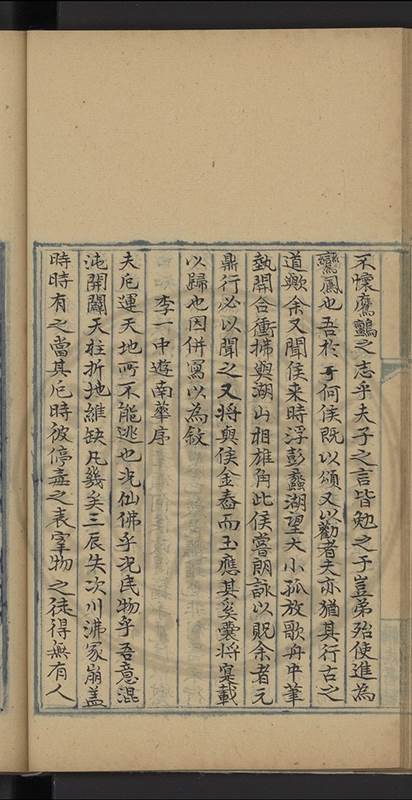 不懷鷹鸇之志乎夫子之言皆勉之于豈弟殆使進為
鸞鳳也吾於于何侯既以頌又以勸者夫亦猶其行古之
道歟余又聞侯来時浮彭蠡湖望大小孤放歌舟中筆
埶開合衝拂與湖山相雄角此侯嘗朗詠以貺余者元
鼎行必以聞之又將與侯金舂而玉應其奚囊將寔載
以歸也因併寫以為敘
李一中遊南華序
夫厄運天地所不能逃也况仙佛乎况民物乎吾意混
沌開闢天柱折地維缺凡幾矣三辰失次川沸冢崩蓋
時時有之當其厄時彼停毒之表宰物之徒得無有人